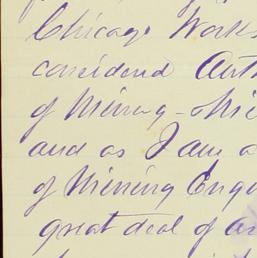 Chicago Works
considered Auth
of Mining
and as I am a
of Mining Engi
great deal of